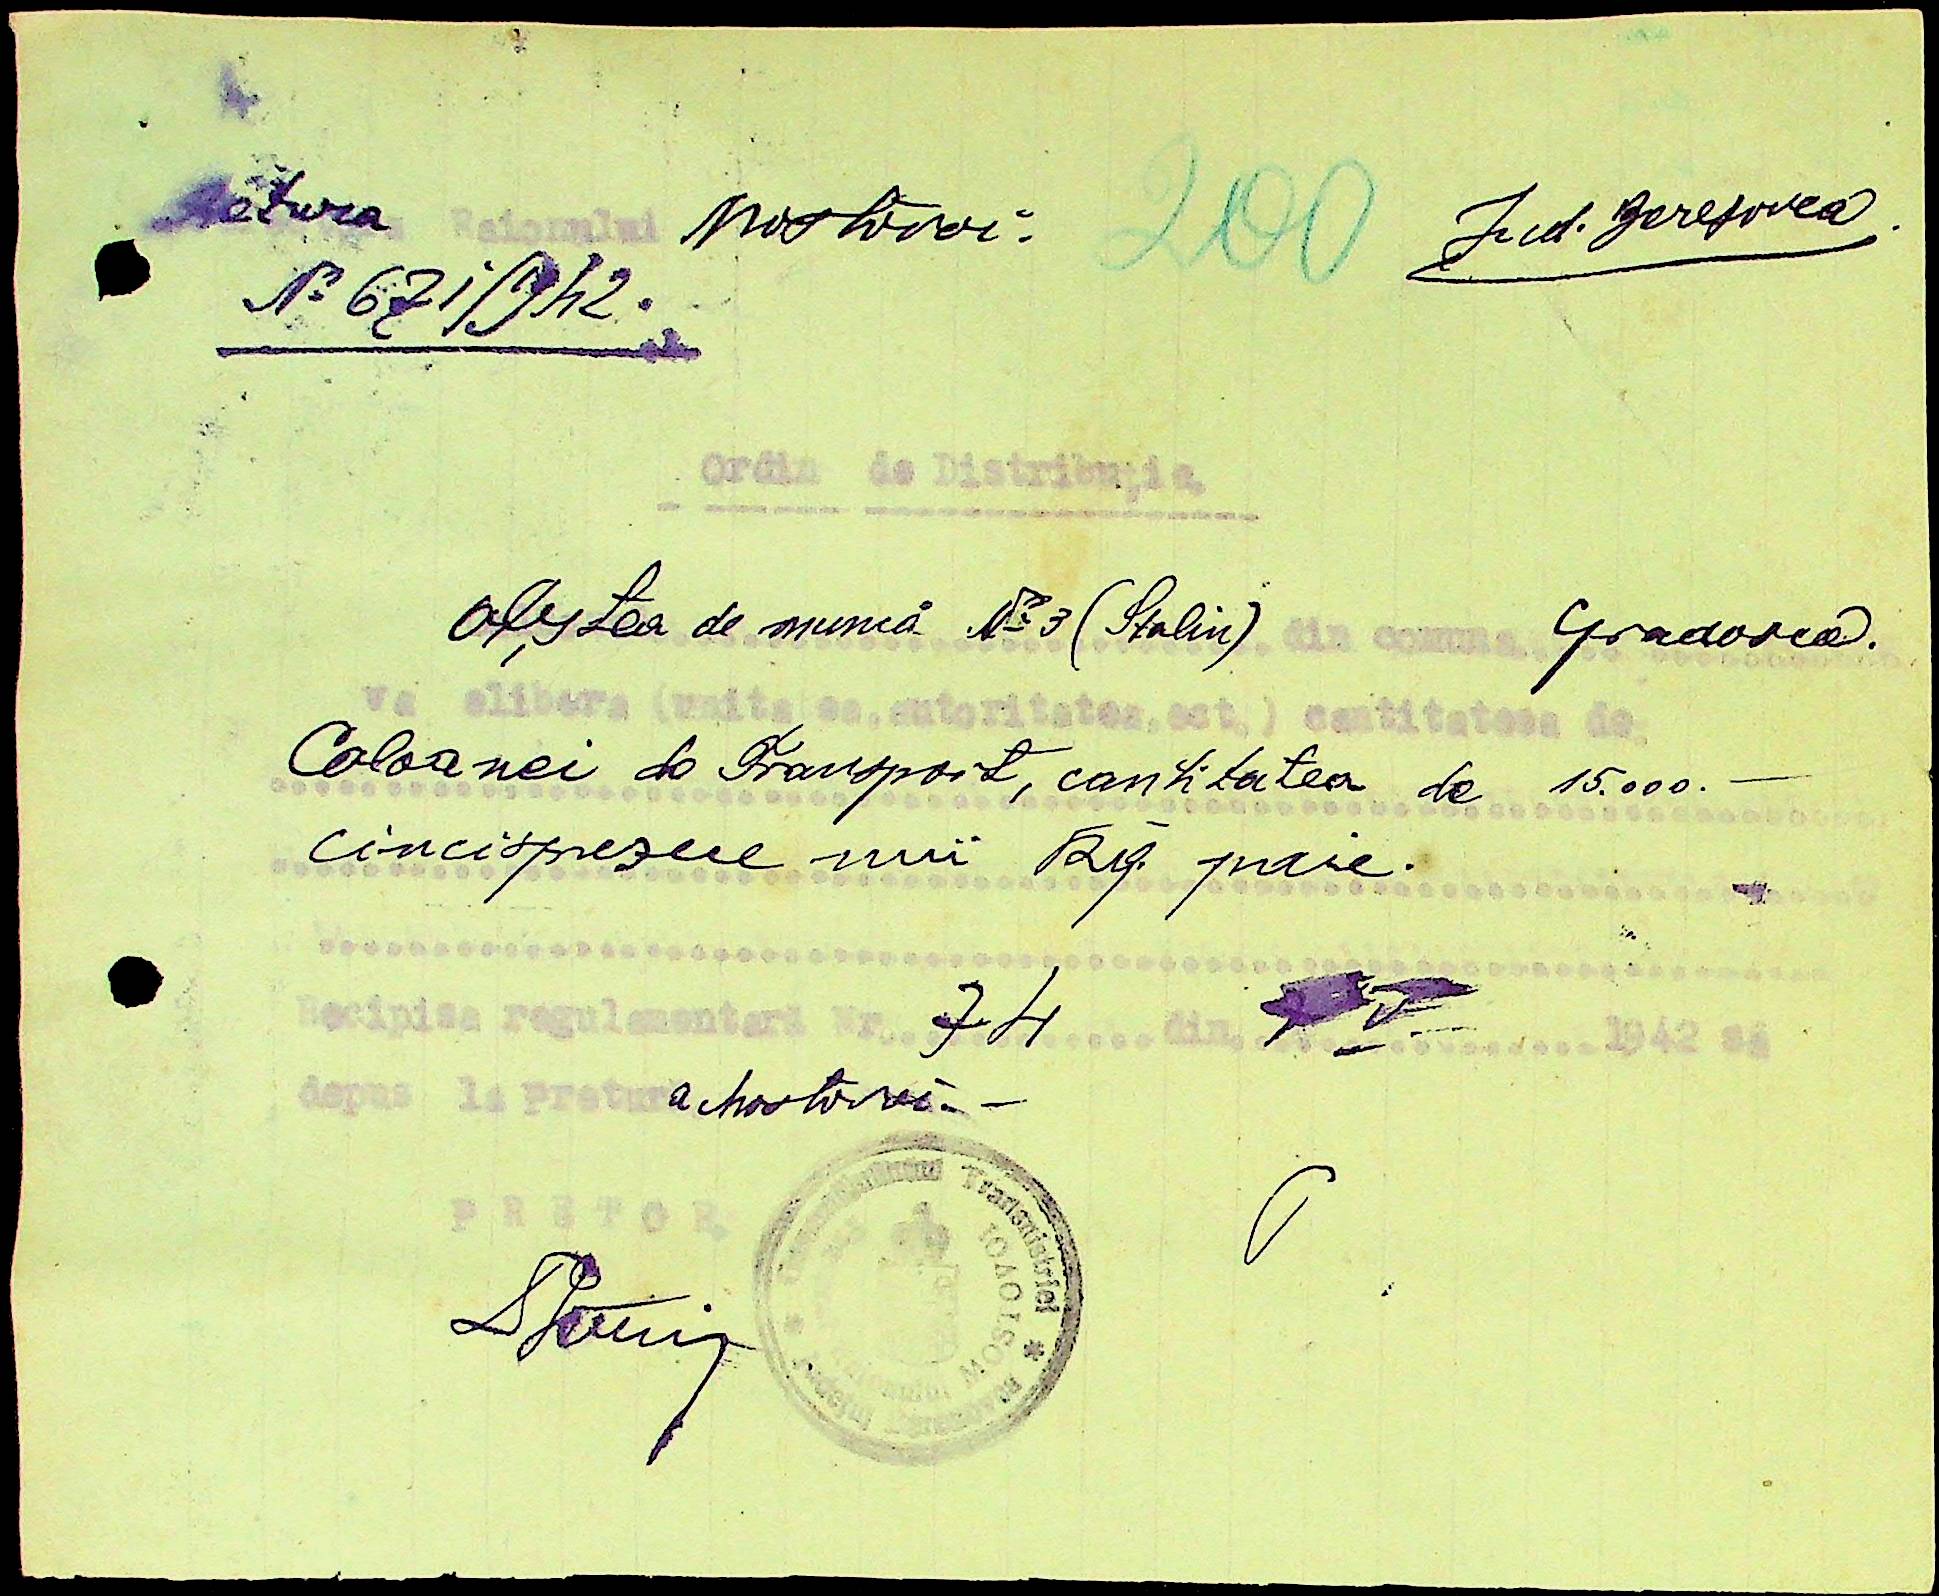 Pretura Raionului Mostovoi. 200 Jud. Berezovca.
No 671/942.
Ordin de Distribuţie.
Obştea de muncă No 3 (Stalin) din comuna Gradovca.
va elibera (unitatea, autoritatea, ect.) cantitatea de
Coloanei de Transport, cantitatea de 15.000.—
cincisprezece mii Kg. paie.
Recipisa regulamentară Nr. 74 din 1942 să
depus la Pretura Mostovoi.—
PRETOR,
Guvernământul Transnistriei * Judeţul Berezovca *
Raionului MOSTOVOI